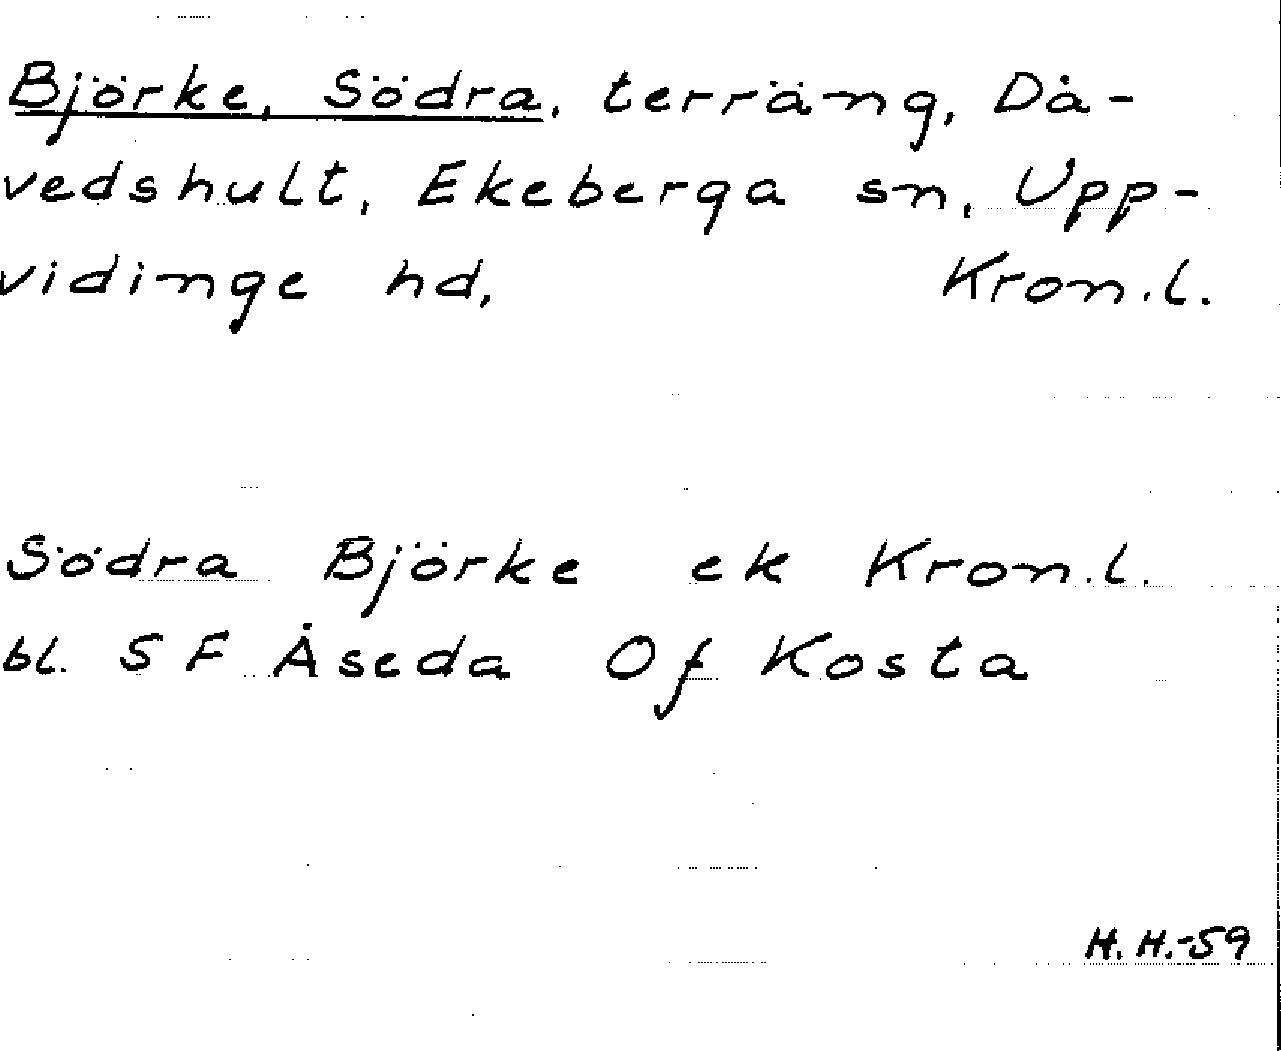 Björke, Södra, terräng, Då-
vedshult, Ekeberga sn, Upp-
vidinge hd, Kron.l.
Södra Björke ek Kron.l.
bl. S F Åseda Of Kosta
H.H.-59